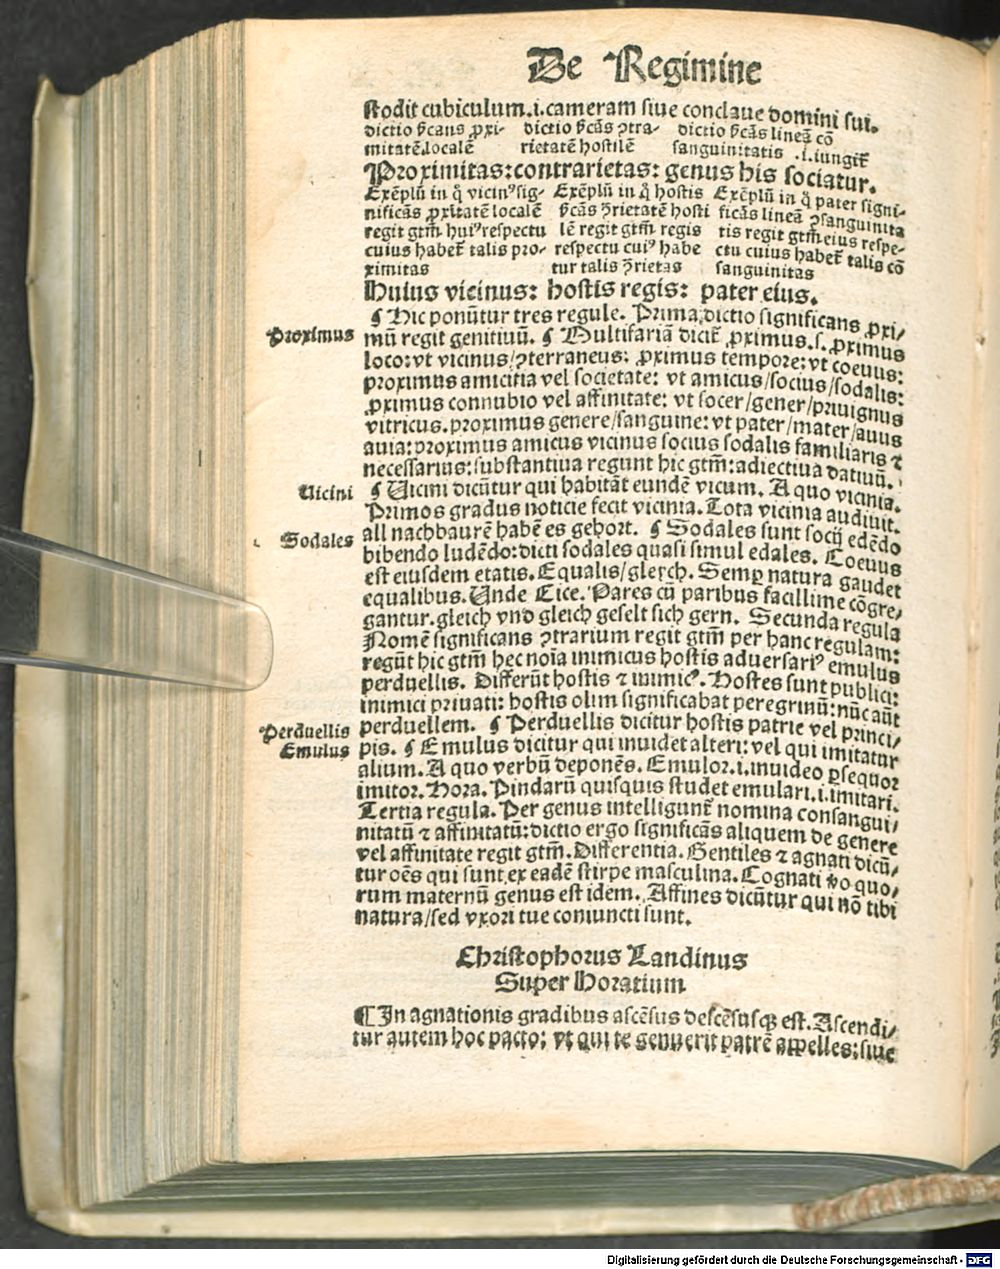 De Regimine
stodit cubiculum.i.cameram siue conclaue domini sui.
dictio ſcans ꝓxi- dictio ſcãs ↄtra- dictio ſcãs lineã cõ
mitatẽ localẽ rietatẽ hostilẽ sanguinitatis .i.iungit̃
Proximitas:contrarietas: genus his sociatur.
Exẽplũ in q̃ vicinꝰ sig- Exẽplũ in q̃ hostis Exẽplũ in q̃ pater signi-
nificãs ꝓxĩtatẽ localẽ ſcãs ↄ̃rietatẽ hosti ficãs lineã ↄsanguinita
regit gtm̃ huiꝰ respectu lẽ regit gtm̃ regis tis regit gtm̃ eius respe-
cuius habet̃ talis pro- respectu cuiꝰ habe ctu cuius habet̃ talis cõ
ximitas tur talis ↄ̃rietas sanguinitas
Huius vicinus: hostis regis: pater eius.
¶ Hic ponũtur tres regule. Prima dictio significans ꝓxi/
Proximus mũ regit genitiuũ. ¶ Multifariã dicit̃ ꝓximus.s. ꝓximus
loco:vt vicinus/ↄterraneus: ꝓximus tempore:vt coeuus:
proximus amicitia vel societate: vt amicus/socius/sodalis:
ꝓximus connubio vel affinitate: vt socer/gener/priuignus
vitricus.proximus genere/sanguine:vt pater/mater/auus
auia:proximus amicus vicinus socius sodalis familiaris ⁊
necessarius:substantiua regunt hic gtm̃:adiectiua datiuũ.
Uicini ¶ Uicini dicũtur qui habitãt eundẽ vicum. A quo vicinia.
Primos gradus noticie fecit vicinia. Tota vicinia audiuit.
all nachbaurẽ habẽ es gehort. ¶ Sodales sunt socij edẽdo
Sodales bibendo ludẽdo:dicti sodales quasi simul edales. Coeuus
est eiusdem etatis. Equalis/gleych. Semꝑ natura gaudet
equalibus. Unde Cice. Pares cũ paribus facillime cõgre/
gantur.gleich vnd gleich geselt sich gern. Secunda regula
Nomẽ significans ↄtrarium regit gtm̃ per hanc regulam:
regũt hic gtm̃ hec noĩa inimicus hostis aduersariꝰ emulus
perduellis. Differũt hostis ⁊ inimicꝰ. Hostes sunt publici:
inimici priuati: hostis olim significabat peregrinũ:nũc aũt
Perduellis perduellem. ¶ Perduellis dicitur hostis patrie vel princi/
Emulus pis. ¶ Emulus dicitur qui inuidet alteri:vel qui imitatur
alium. A quo verbũ deponẽs. Emulor.i.inuideo ꝑsequor
imitor. Hora. Pindarũ quisquis studet emulari.i.imitari.
Tertia regula. Per genus intelligunt̃ nomina consangui/
nitatũ ⁊ affinitatũ:dictio ergo significãs aliquem de genere
vel affinitate regit gtm̃. Differentia. Gentiles ⁊ agnati dicũ/
tur oẽs qui sunt ex eadẽ stirpe masculina. Cognati ṽo quo/
rum maternũ genus est idem. Affines dicũtur qui nõ tibi
natura/sed vxori tue coniuncti sunt.
Christophorus Landinus
Super Horatium
¶ In agnationis gradibus ascẽsus descẽsusqꝫ est. Ascendi/
tur autem hoc pacto: vt qui te genuerit patrẽ appelles:siue
Digitalisierung gefördert durch die Deutsche Forschungsgemeinschaft - DFG